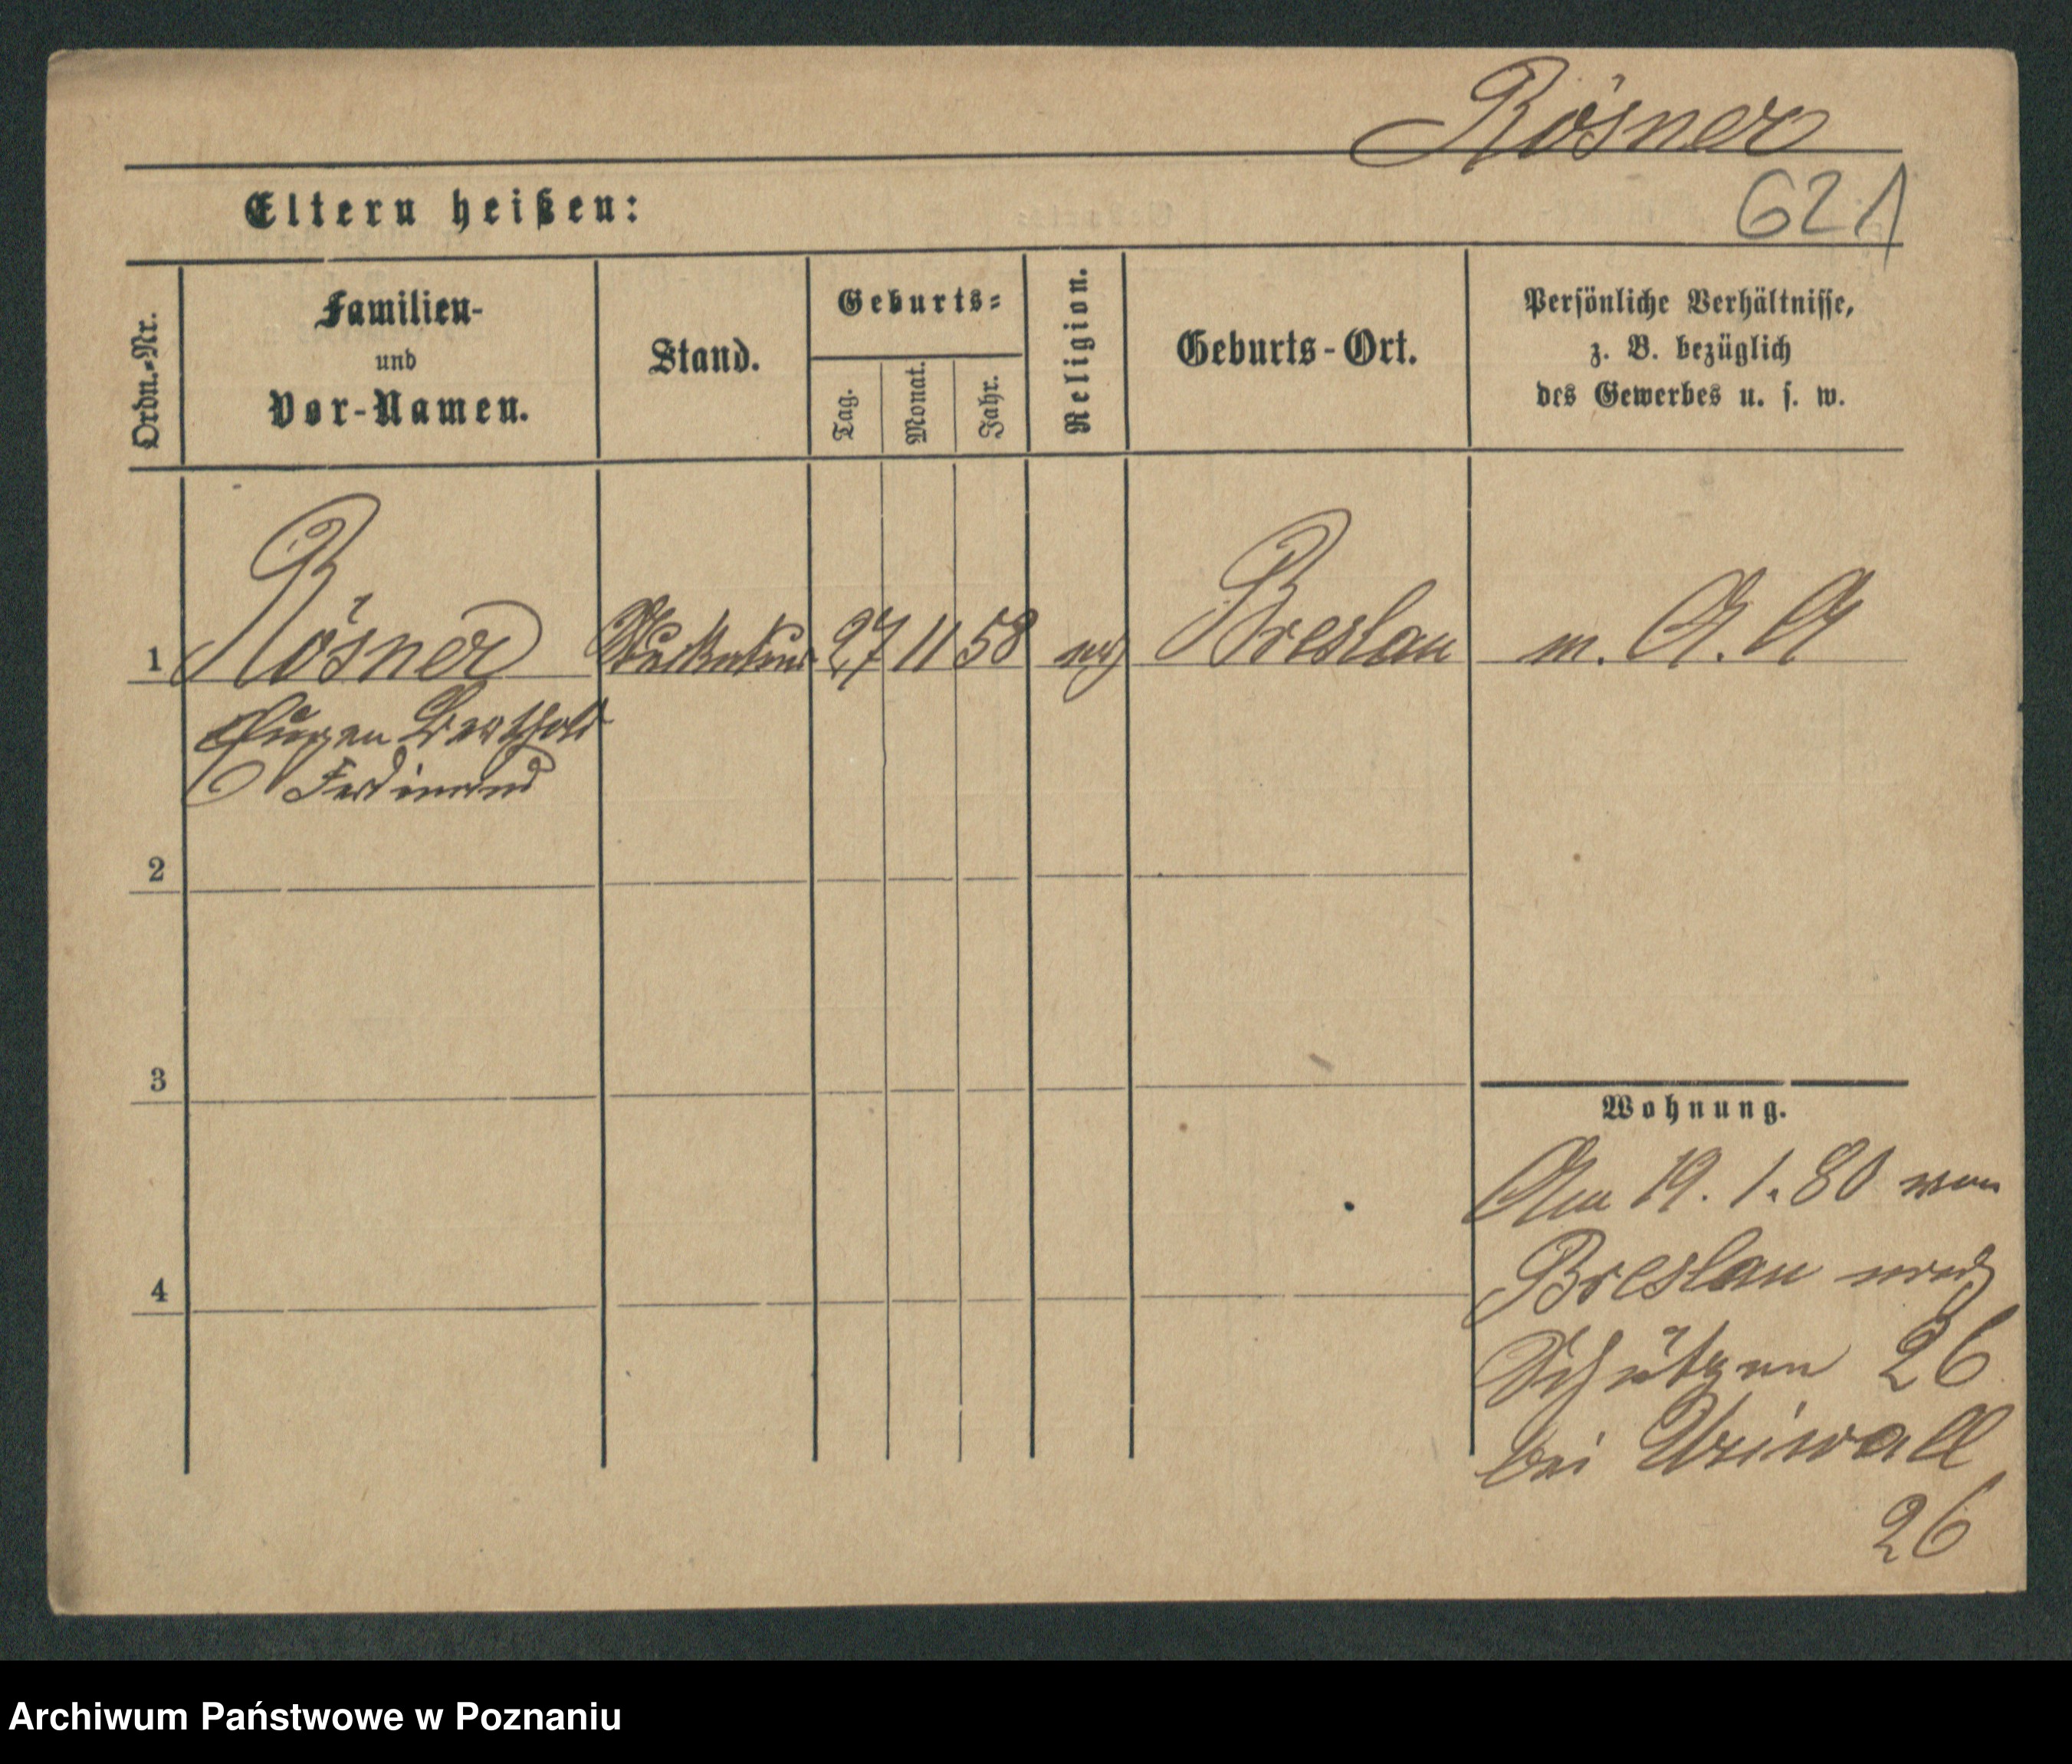 Rösner
621
Eltern heißen:
Ordn.-Nr.
Familien-
und
Vor-Namen.
Stand.
Geburts-
Tag.
Monat.
Jahr.
Religion.
Geburts-Ort.
Persönliche Verhältnisse,
z. B. bezüglich
des Gewerbes u. s. w.
1 Rösner 27 11 58 Breslau m. A. A
Eugen Berthold
Ferdinand
2
3
4
Wohnung.
Am 19. 1. 80 von
Breslau nach
Schützen 26
bei
26
Archiwum Państwowe w Poznaniu